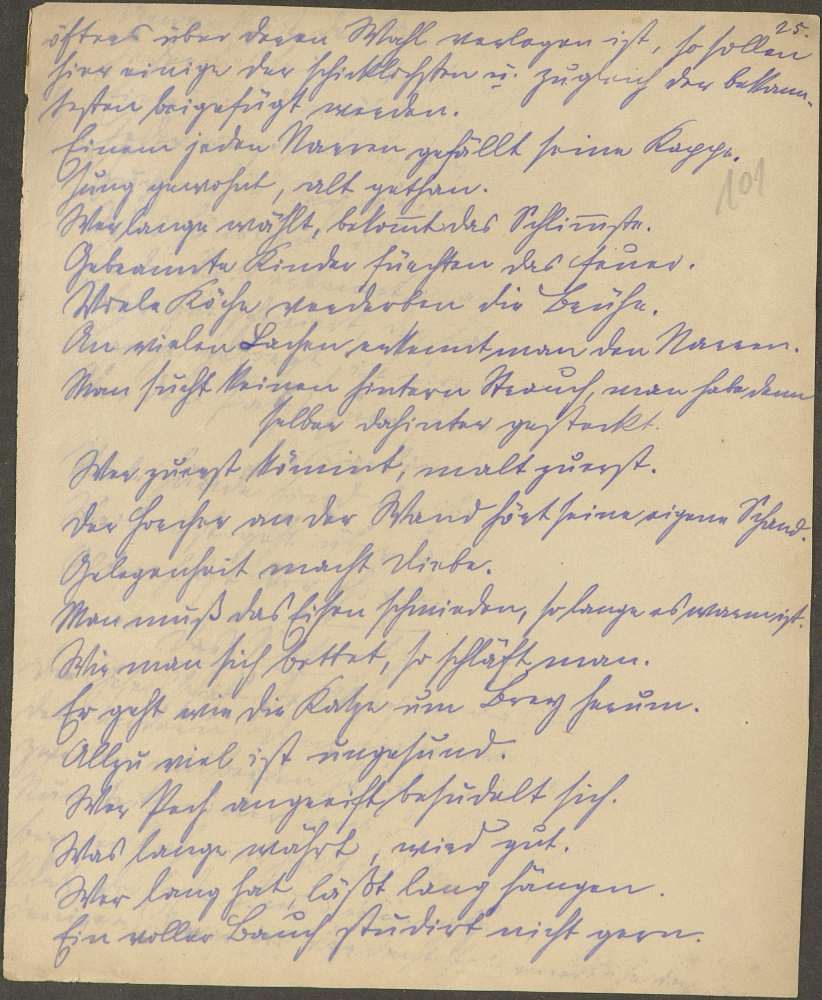 25.
öfters über deren Wahl verlegen ist, so sollen
hier einige der schicklichsten u. zugleich der bekann-
testen beigefügt werden.
Einem jeden Narren gefällt seine Kappe.
101
Jung gewohnt, alt gethan.
Wer lange wählt, bekom̅t das Schlim̅ste.
Gebrannte Kinder fürchten das Feuer.
Viele Köche verderben die Brühe.
An vielen Lachen erkennt man den Narren.
Man sucht keinen hintern Strauch, man habe denn
selber dahinter gesteckt.
Wer zuerst kömmt, malt zuerst.
Der Horcher an der Wand hört seine eigene Schand.
Gelegenheit macht Diebe.
Man muß das Eisen schmieden, so lange es warm ist.
Wie man sich bettet, so schläft man.
Er geht wie die Katze um Brey herum.
Allzu viel ist ungesund.
Wer Pech angreift besudelt sich.
Was lange währt, wird gut.
Wer lang hat, läßt lang hängen.
Ein voller Bauch studirt nicht gern.